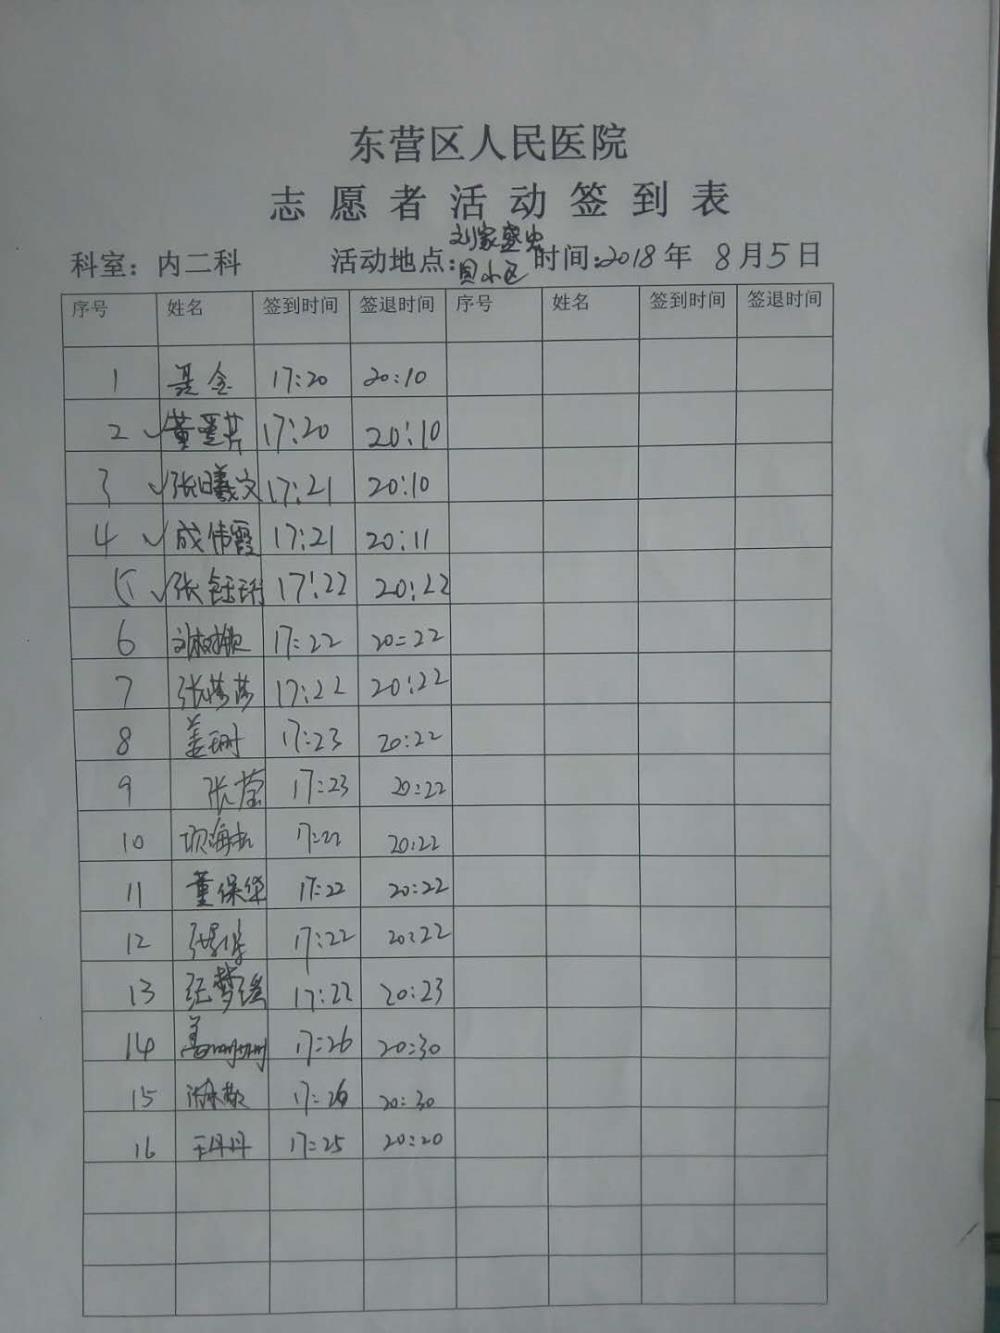 东营区人民医院
志愿者活动签到表
科室：内二科 活动地点：刘家 小区 时间：2018年 8月5日
序号 姓名 签到时间 签退时间 序号 姓名 签到时间 签退时间
1 17:20 20:10
2 17:20 20:10
3 张曦文 17:21 20:10
4 成伟霞 17:21 20:11
5 张钰 17:22 20:22
6 17:22 20:22
7 张 17:22 20:22
8 姜珊 17:23 20:22
9 张莹 17:23 20:22
10 项海 17:22 20:22
11 董保华 17:22 20:22
12 17:22 20:22
13 张梦瑶 17:22 20:23
14 17:26 20:30
15 17:26 20:30
16 王丹丹 17:25 20:20